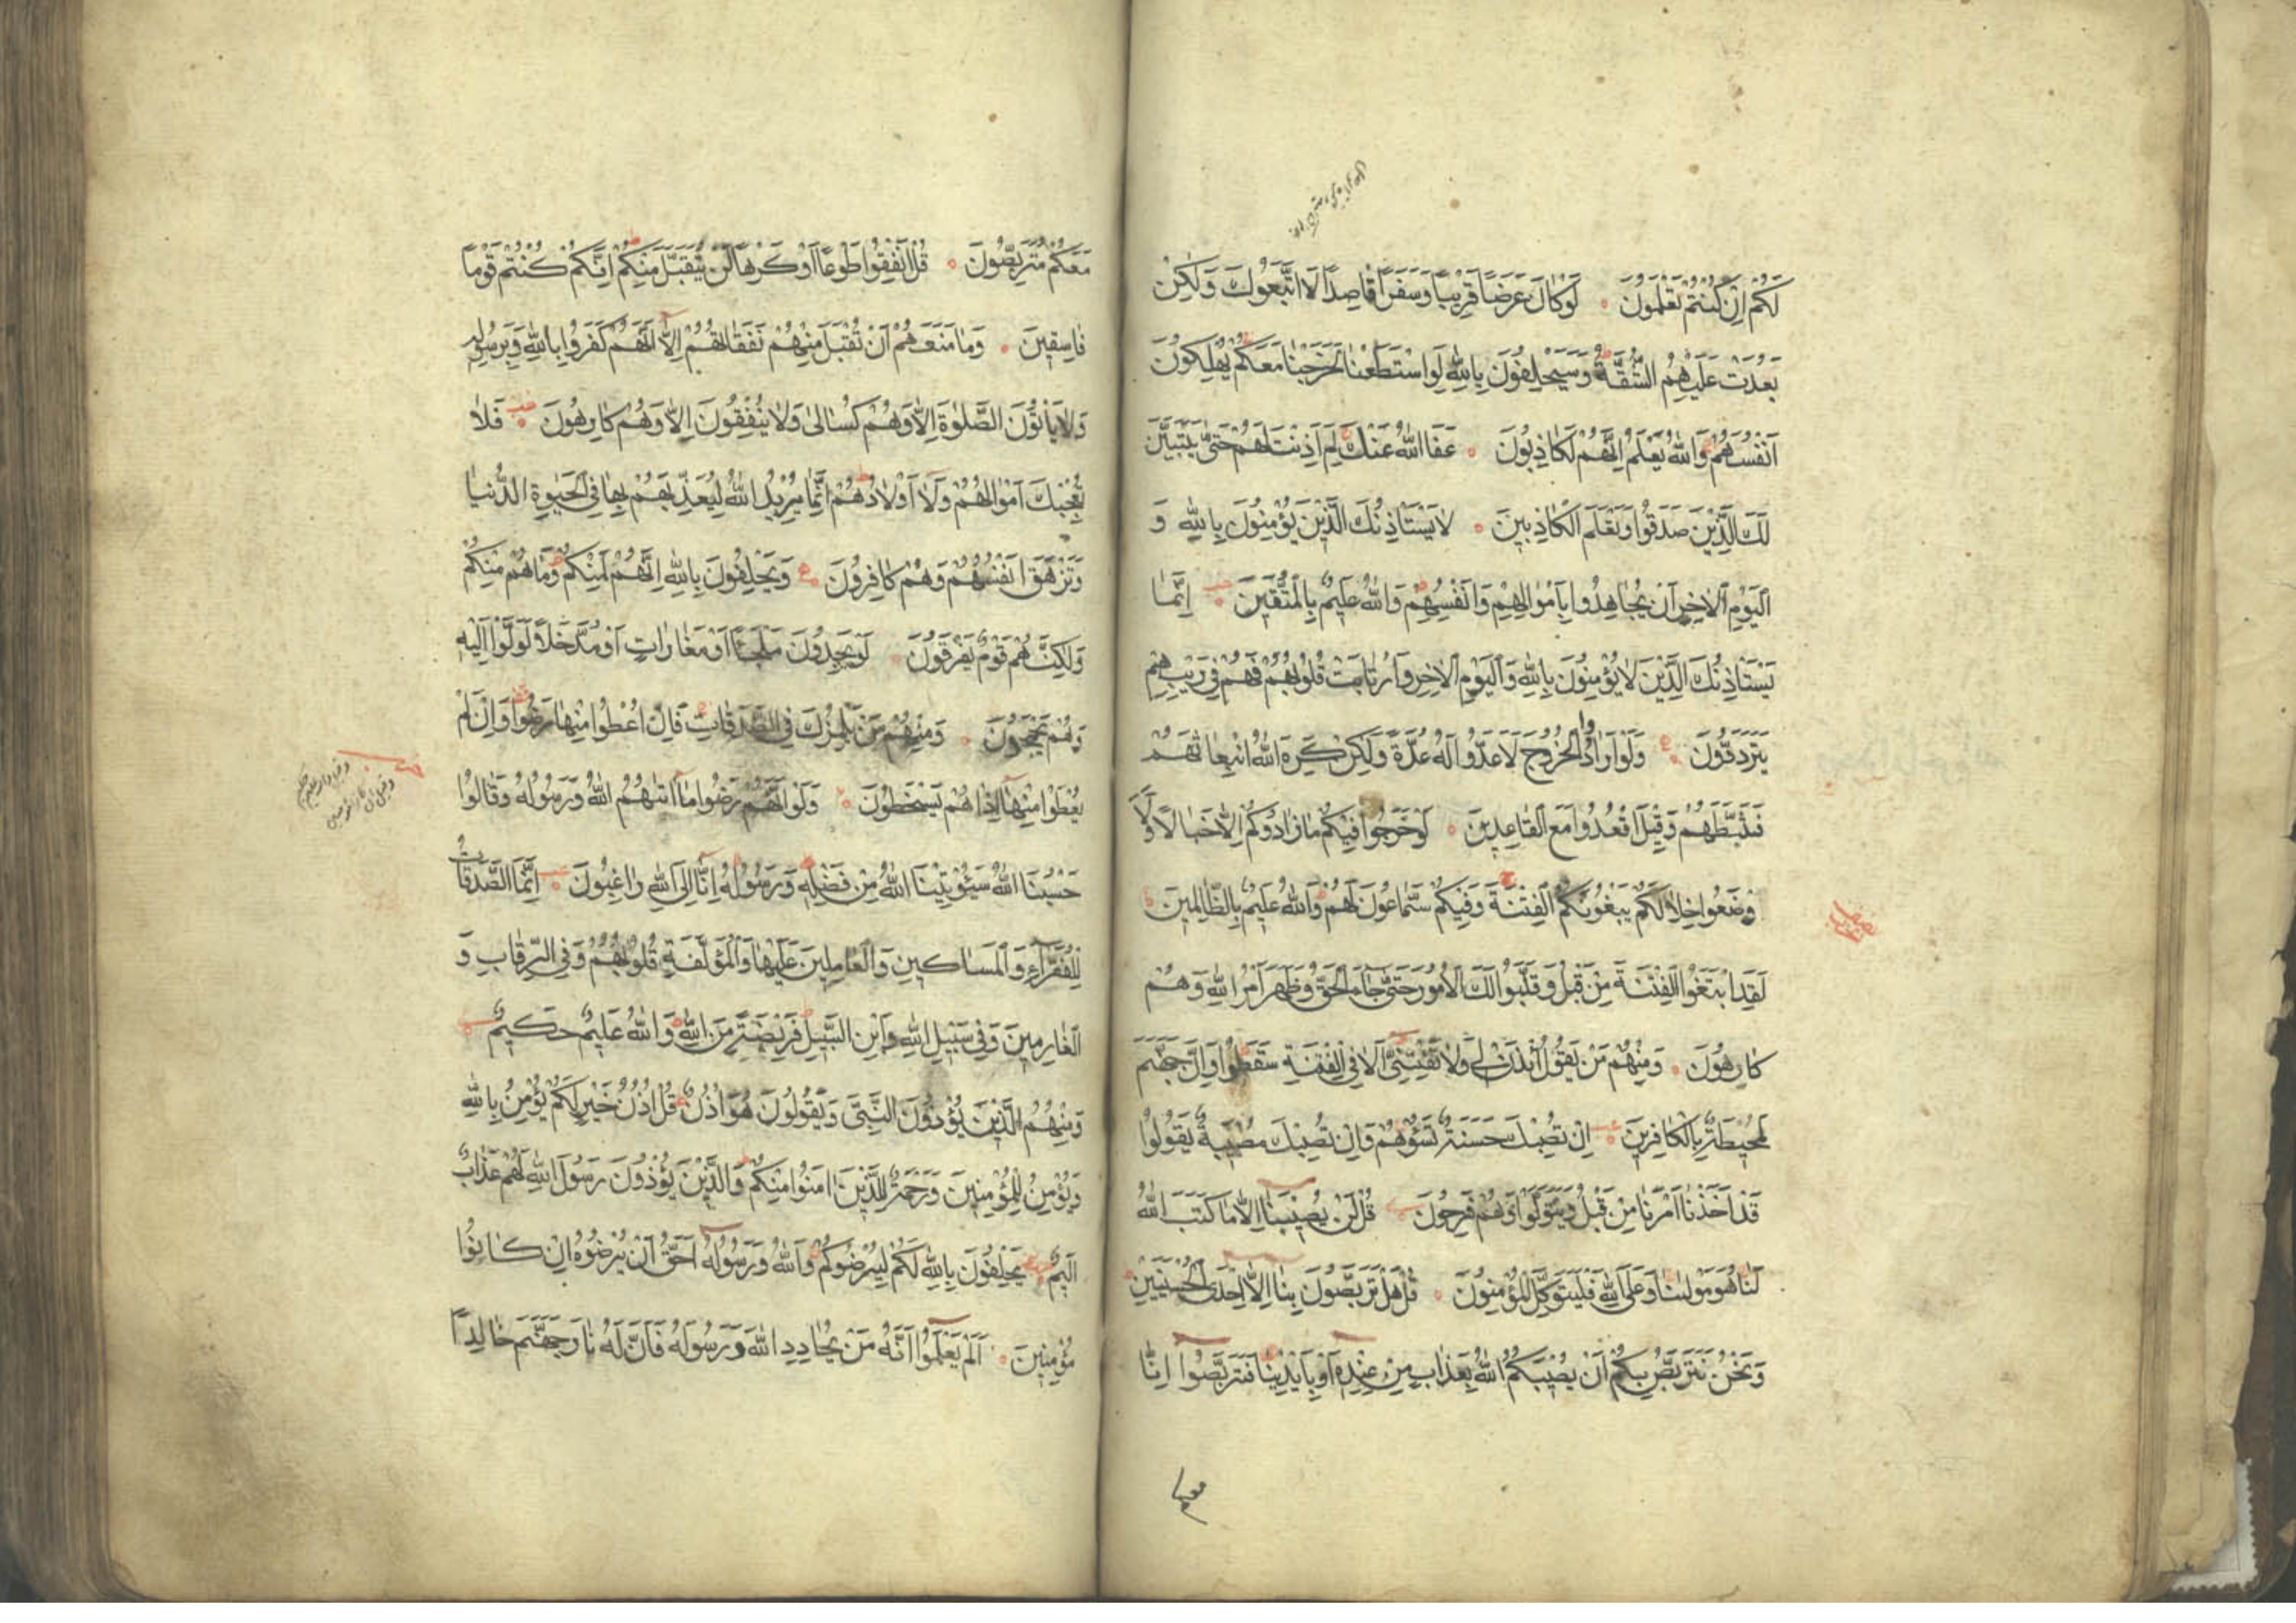 لَكُمْ اِنْ كُنْتُمْ تَعْلَمُونَ لَوْ كَانَ عَرَضًا قَرِيبًا وَسَفَرًا قَاصِدًا لَا اتَّبَعُوكَ وَلٰكِنْ
بَعُدَتْ عَلَيْهِمُ الشُّقَّةُ وَسَيَحْلِفُونَ بِاللّٰهِ لَوِ اسْتَطَعْنَا لَخَرَجْنَا مَعَكُمْ يُهْلِكُونَ
اَنْفُسَهُمْ وَاللّٰهُ يَعْلَمُ اِنَّهُمْ لَكَاذِبُونَ عَفَا اللّٰهُ عَنْكَ لِمَ اَذِنْتَ لَهُمْ حَتّٰى يَتَبَيَّنَ
لَكَ الَّذِينَ صَدَقُوا وَتَعْلَمَ الْكَاذِبِينَ لَا يَسْتَاْذِنُكَ الَّذِينَ يُؤْمِنُونَ بِاللّٰهِ وَ
الْيَوْمِ الْاٰخِرِ اَنْ يُجَاهِدُوا بِاَمْوَالِهِمْ وَاَنْفُسِهِمْ وَاللّٰهُ عَلِيمٌ بِالْمُتَّقِينَ اِنَّمَا
يَسْتَاْذِنُكَ الَّذِينَ لَا يُؤْمِنُونَ بِاللّٰهِ وَالْيَوْمِ الْاٰخِرِ وَارْتَابَتْ قُلُوبُهُمْ فَهُمْ فِى رَيْبِهِمْ
يَتَرَدَّدُونَ وَلَوْ اَرَادُوا الْخُرُوجَ لَاَعَدُّوا لَهُ عُدَّةً وَلٰكِنْ كَرِهَ اللّٰهُ انْبِعَاثَهُمْ
فَثَبَّطَهُمْ وَقِيلَ اقْعُدُوا مَعَ الْقَاعِدِينَ لَوْ خَرَجُوا فِيكُمْ مَا زَادُوكُمْ اِلَّا خَبَالًا وَلَا
وْضَعُوا خِلَالَكُمْ يَبْغُونَكُمُ الْفِتْنَةَ وَفِيكُمْ سَمَّاعُونَ لَهُمْ وَاللّٰهُ عَلِيمٌ بِالظَّالِمِينَ
لَقَدِ ابْتَغَوُا الْفِتْنَةَ مِنْ قَبْلُ وَقَلَّبُوا لَكَ الْاُمُورَ حَتّٰى جَاءَ الْحَقُّ وَظَهَرَ اَمْرُ اللّٰهِ وَهُمْ
كَارِهُونَ وَمِنْهُمْ مَنْ يَقُولُ ائْذَنْ لِى وَلَا تَفْتِنِّى اَلَا فِى الْفِتْنَةِ سَقَطُوا وَاِنَّ جَهَنَّمَ
لَمُحِيطَةٌ بِالْكَافِرِينَ اِنْ تُصِبْكَ حَسَنَةٌ تَسُؤْهُمْ وَاِنْ تُصِبْكَ مُصِيبَةٌ يَقُولُوا
قَدْ اَخَذْنَا اَمْرَنَا مِنْ قَبْلُ وَيَتَوَلَّوْا وَهُمْ فَرِحُونَ قُلْ لَنْ يُصِيبَنَا اِلَّا مَا كَتَبَ اللّٰهُ
لَنَا هُوَ مَوْلٰينَا وَعَلَى اللّٰهِ فَلْيَتَوَكَّلِ الْمُؤْمِنُونَ قُلْ هَلْ تَرَبَّصُونَ بِنَا اِلَّا اِحْدَى الْحُسْنَيَيْنِ
وَنَحْنُ نَتَرَبَّصُ بِكُمْ اَنْ يُصِيبَكُمُ اللّٰهُ بِعَذَابٍ مِنْ عِنْدِهِ اَوْ بِاَيْدِينَا فَتَرَبَّصُوا اِنَّا
معكم
مَعَكُمْ مُتَرَبِّصُونَ قُلْ اَنْفِقُوا طَوْعًا اَوْ كَرْهًا لَنْ يُتَقَبَّلَ مِنْكُمْ اِنَّكُمْ كُنْتُمْ قَوْمًا
فَاسِقِينَ وَمَا مَنَعَهُمْ اَنْ تُقْبَلَ مِنْهُمْ نَفَقَاتُهُمْ اِلَّا اَنَّهُمْ كَفَرُوا بِاللّٰهِ وَبِرَسُولِهِ
وَلَا يَاْتُونَ الصَّلٰوةَ اِلَّا وَهُمْ كُسَالٰى وَلَا يُنْفِقُونَ اِلَّا وَهُمْ كَارِهُونَ فَلَا
تُعْجِبْكَ اَمْوَالُهُمْ وَلَا اَوْلَادُهُمْ اِنَّمَا يُرِيدُ اللّٰهُ لِيُعَذِّبَهُمْ بِهَا فِى الْحَيٰوةِ الدُّنْيَا
وَتَزْهَقَ اَنْفُسُهُمْ وَهُمْ كَافِرُونَ وَيَحْلِفُونَ بِاللّٰهِ اِنَّهُمْ لَمِنْكُمْ وَمَا هُمْ مِنْكُمْ
وَلٰكِنَّهُمْ قَوْمٌ يَفْرَقُونَ لَوْ يَجِدُونَ مَلْجَئًا اَوْ مَغَارَاتٍ اَوْ مُدَّخَلًا لَوَلَّوْا اِلَيْهِ
وَهُمْ يَجْمَحُونَ وَمِنْهُمْ مَنْ يَلْمِزُكَ فِى الصَّدَقَاتِ فَاِنْ اُعْطُوا مِنْهَا رَضُوا وَاِنْ لَمْ
يُعْطَوْا مِنْهَا اِذَا هُمْ يَسْخَطُونَ وَلَوْ اَنَّهُمْ رَضُوا مَا اٰتٰيهُمُ اللّٰهُ وَرَسُولُهُ وَقَالُوا
حَسْبُنَا اللّٰهُ سَيُؤْتِينَا اللّٰهُ مِنْ فَضْلِهِ وَرَسُولُهُ اِنَّا اِلَى اللّٰهِ رَاغِبُونَ اِنَّمَا الصَّدَقَاتُ
لِلْفُقَرَاءِ وَالْمَسَاكِينِ وَالْعَامِلِينَ عَلَيْهَا وَالْمُؤَلَّفَةِ قُلُوبُهُمْ وَفِى الرِّقَابِ وَ
الْغَارِمِينَ وَفِى سَبِيلِ اللّٰهِ وَابْنِ السَّبِيلِ فَرِيضَةً مِنَ اللّٰهِ وَاللّٰهُ عَلِيمٌ حَكِيمٌ
وَمِنْهُمُ الَّذِينَ يُؤْذُونَ النَّبِىَّ وَيَقُولُونَ هُوَ اُذُنٌ قُلْ اُذُنُ خَيْرٍ لَكُمْ يُؤْمِنُ بِاللّٰهِ
وَيُؤْمِنُ لِلْمُؤْمِنِينَ وَرَحْمَةٌ لِلَّذِينَ اٰمَنُوا مِنْكُمْ وَالَّذِينَ يُؤْذُونَ رَسُولَ اللّٰهِ لَهُمْ عَذَابٌ
اَلِيمٌ يَحْلِفُونَ بِاللّٰهِ لَكُمْ لِيُرْضُوكُمْ وَاللّٰهُ وَرَسُولُهُ اَحَقُّ اَنْ يُرْضُوهُ اِنْ كَانُوا
مُؤْمِنِينَ اَلَمْ يَعْلَمُوا اَنَّهُ مَنْ يُحَادِدِ اللّٰهَ وَرَسُولَهُ فَاَنَّ لَهُ نَارَ جَهَنَّمَ خَالِدًا